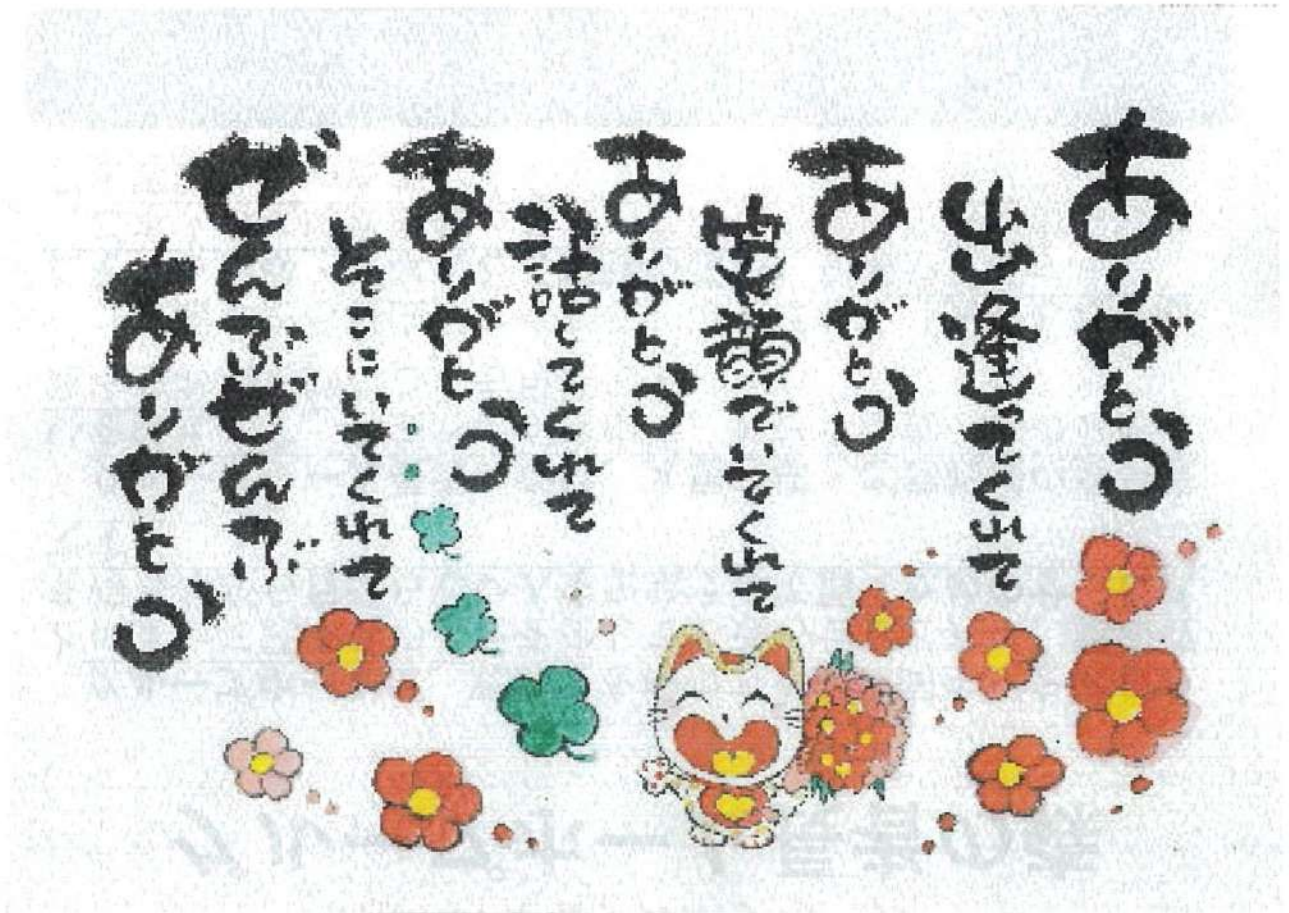 ありがとう
出逢ってくれて
ありがとう
笑顔でいてくれて
ありがとう
話してくれて
ありがとう
そこにいてくれて
ぜんぶぜんぶ
ありがとう